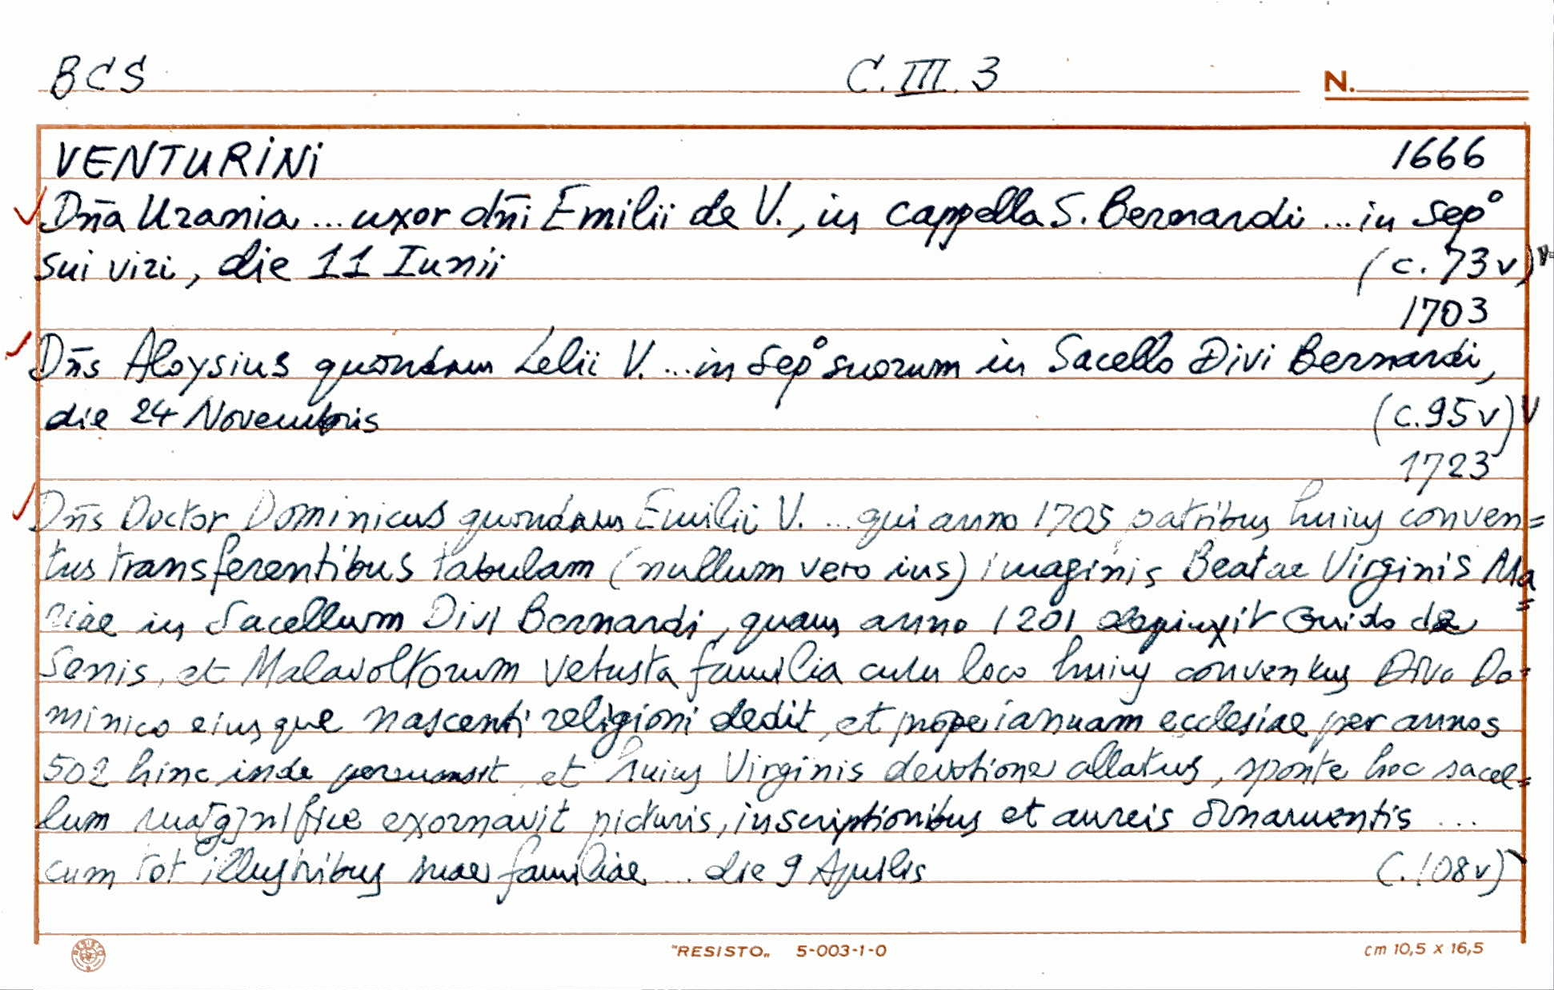 BCS C.III.3 N.
VENTURINI 1666
Dña Urania ... uxor dñi Emilii de V., in cappella S. Bernardi ... in sepº
sui viri, die 11 Iunii (c. 73v)
1703
Dñs Aloysius quondam Lelii V. ... in sepº suorum in Sacello Divi Bernardi,
die 24 Novembris (c. 95v)
1723
Dñs Doctor Dominicus quondam Emilii V. ... qui anno 1705 patribus huius conven=
tus transferentibus tabulam (nullum vero ius) imaginis Beatae Virginis Ma=
riae in Sacellum Divi Bernardi, quam anno 1201 depinxit Guido de
Senis, et Malavoltorum vetusta familia cum loco huius conventus Divo Do=
minico eiusque nascenti religioni dedit, et prope ianuam ecclesiae per annos
502 hinc inde permansit et huius Virginis devotione allatus, sponte hoc sacel=
lum ma[g]nifice exornavit picturis, inscriptionibus et aureis ornamentis ...
cum tot illustribus suae familiae ... die 9 Aprilis (c. 108v)
"RESISTO„ 5-003-1-0 cm 10,5 x 16,5